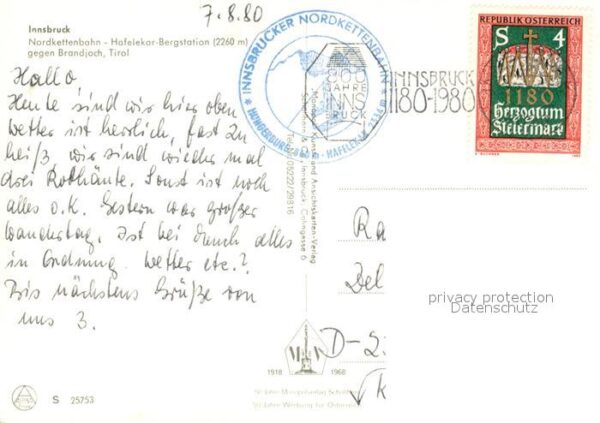 7.8.80
Innsbruck
Nordkettenbahn - Hafelekar-Bergstation (2260 m)
gegen Brandjoch, Tirol
Hallo
Heute sind wir hier oben
Wetter ist herrlich, fast zu
heiß, wir sind wieder mal
drei Rothäute. Sonst ist noch
alles o.k. Gestern war großer
Wandertag. Ist bei Euch alles
in Ordnung. Wetter etc.?
Bis nächstens Grüße von
uns 3.
S 25753
INNSBRUCKER NORDKETTENBAHN
HUNGERBURG HAFELEKAR
800
JAHRE
INNS
BRUCK
INNSBRUCK
1180-1980
REPUBLIK ÖSTERREICH
S 4
1180
Herzogtum
Steiermark
Kunst- und Ansichtskarten-Verlag
Innsbruck, Cohngasse 6
05222/29816
1918 1968
50 Jahre Werbung für Österreich
Ra
Del
D-2
privacy protection
Datenschutz